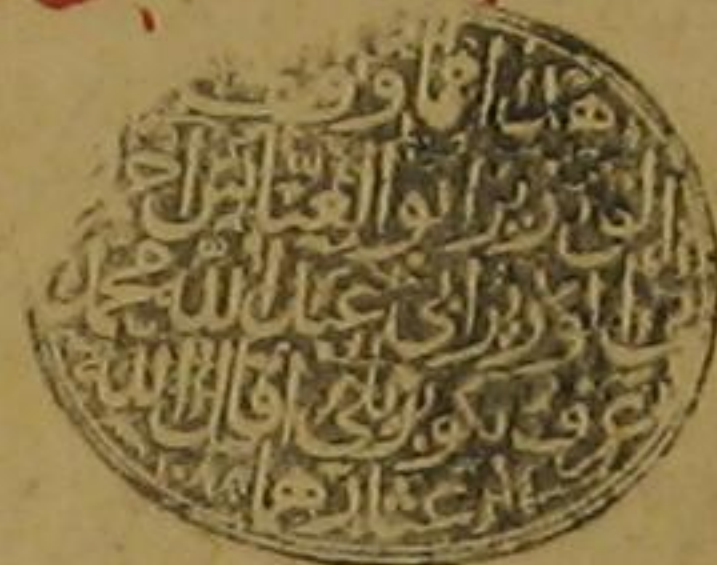 هذا مما وقف
الوزير ابو العباس احمد
ابن الوزير ابي عبد الله محمد
عرف بكوبريلي اقال الله
عثارهما